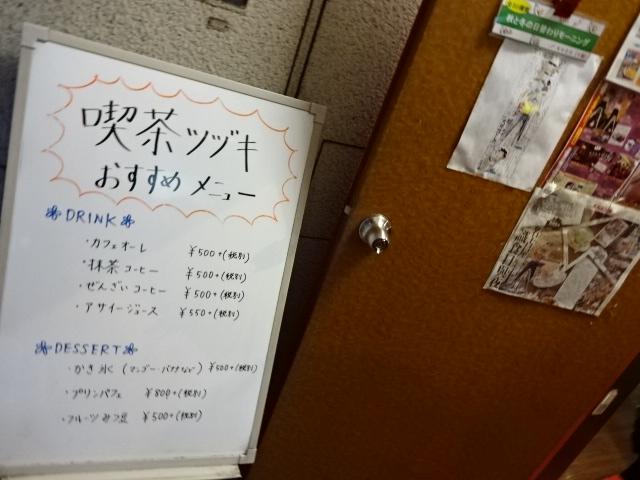 喫茶ツヅキ
おすすめメニュー
DRINK
・カフェオーレ ¥500+(税別)
・抹茶コーヒー ¥500+(税別)
・ぜんざいコーヒー ¥500+(税別)
・アサイージュース ¥550+(税別)
DESSERT
・かき氷(マンゴー・バナナなど) ¥500+(税別)
・プリンパフェ ¥800+(税別)
・フルーツみつ豆 ¥500+(税別)